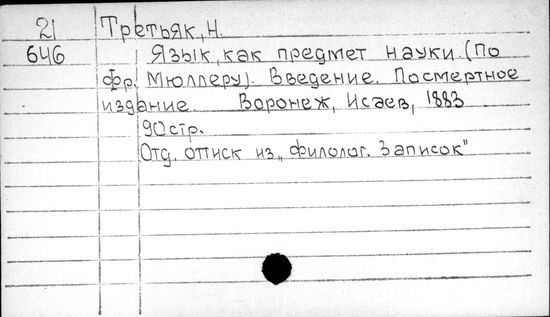 21 Третьяк, Н.
646 Язык, как предмет науки. (По
фр. Мюллеру). Введение. Посмертное
издание. Воронеж, Исаев, 1883
90 стр.
Отд. оттиск из „филолог. Записок"